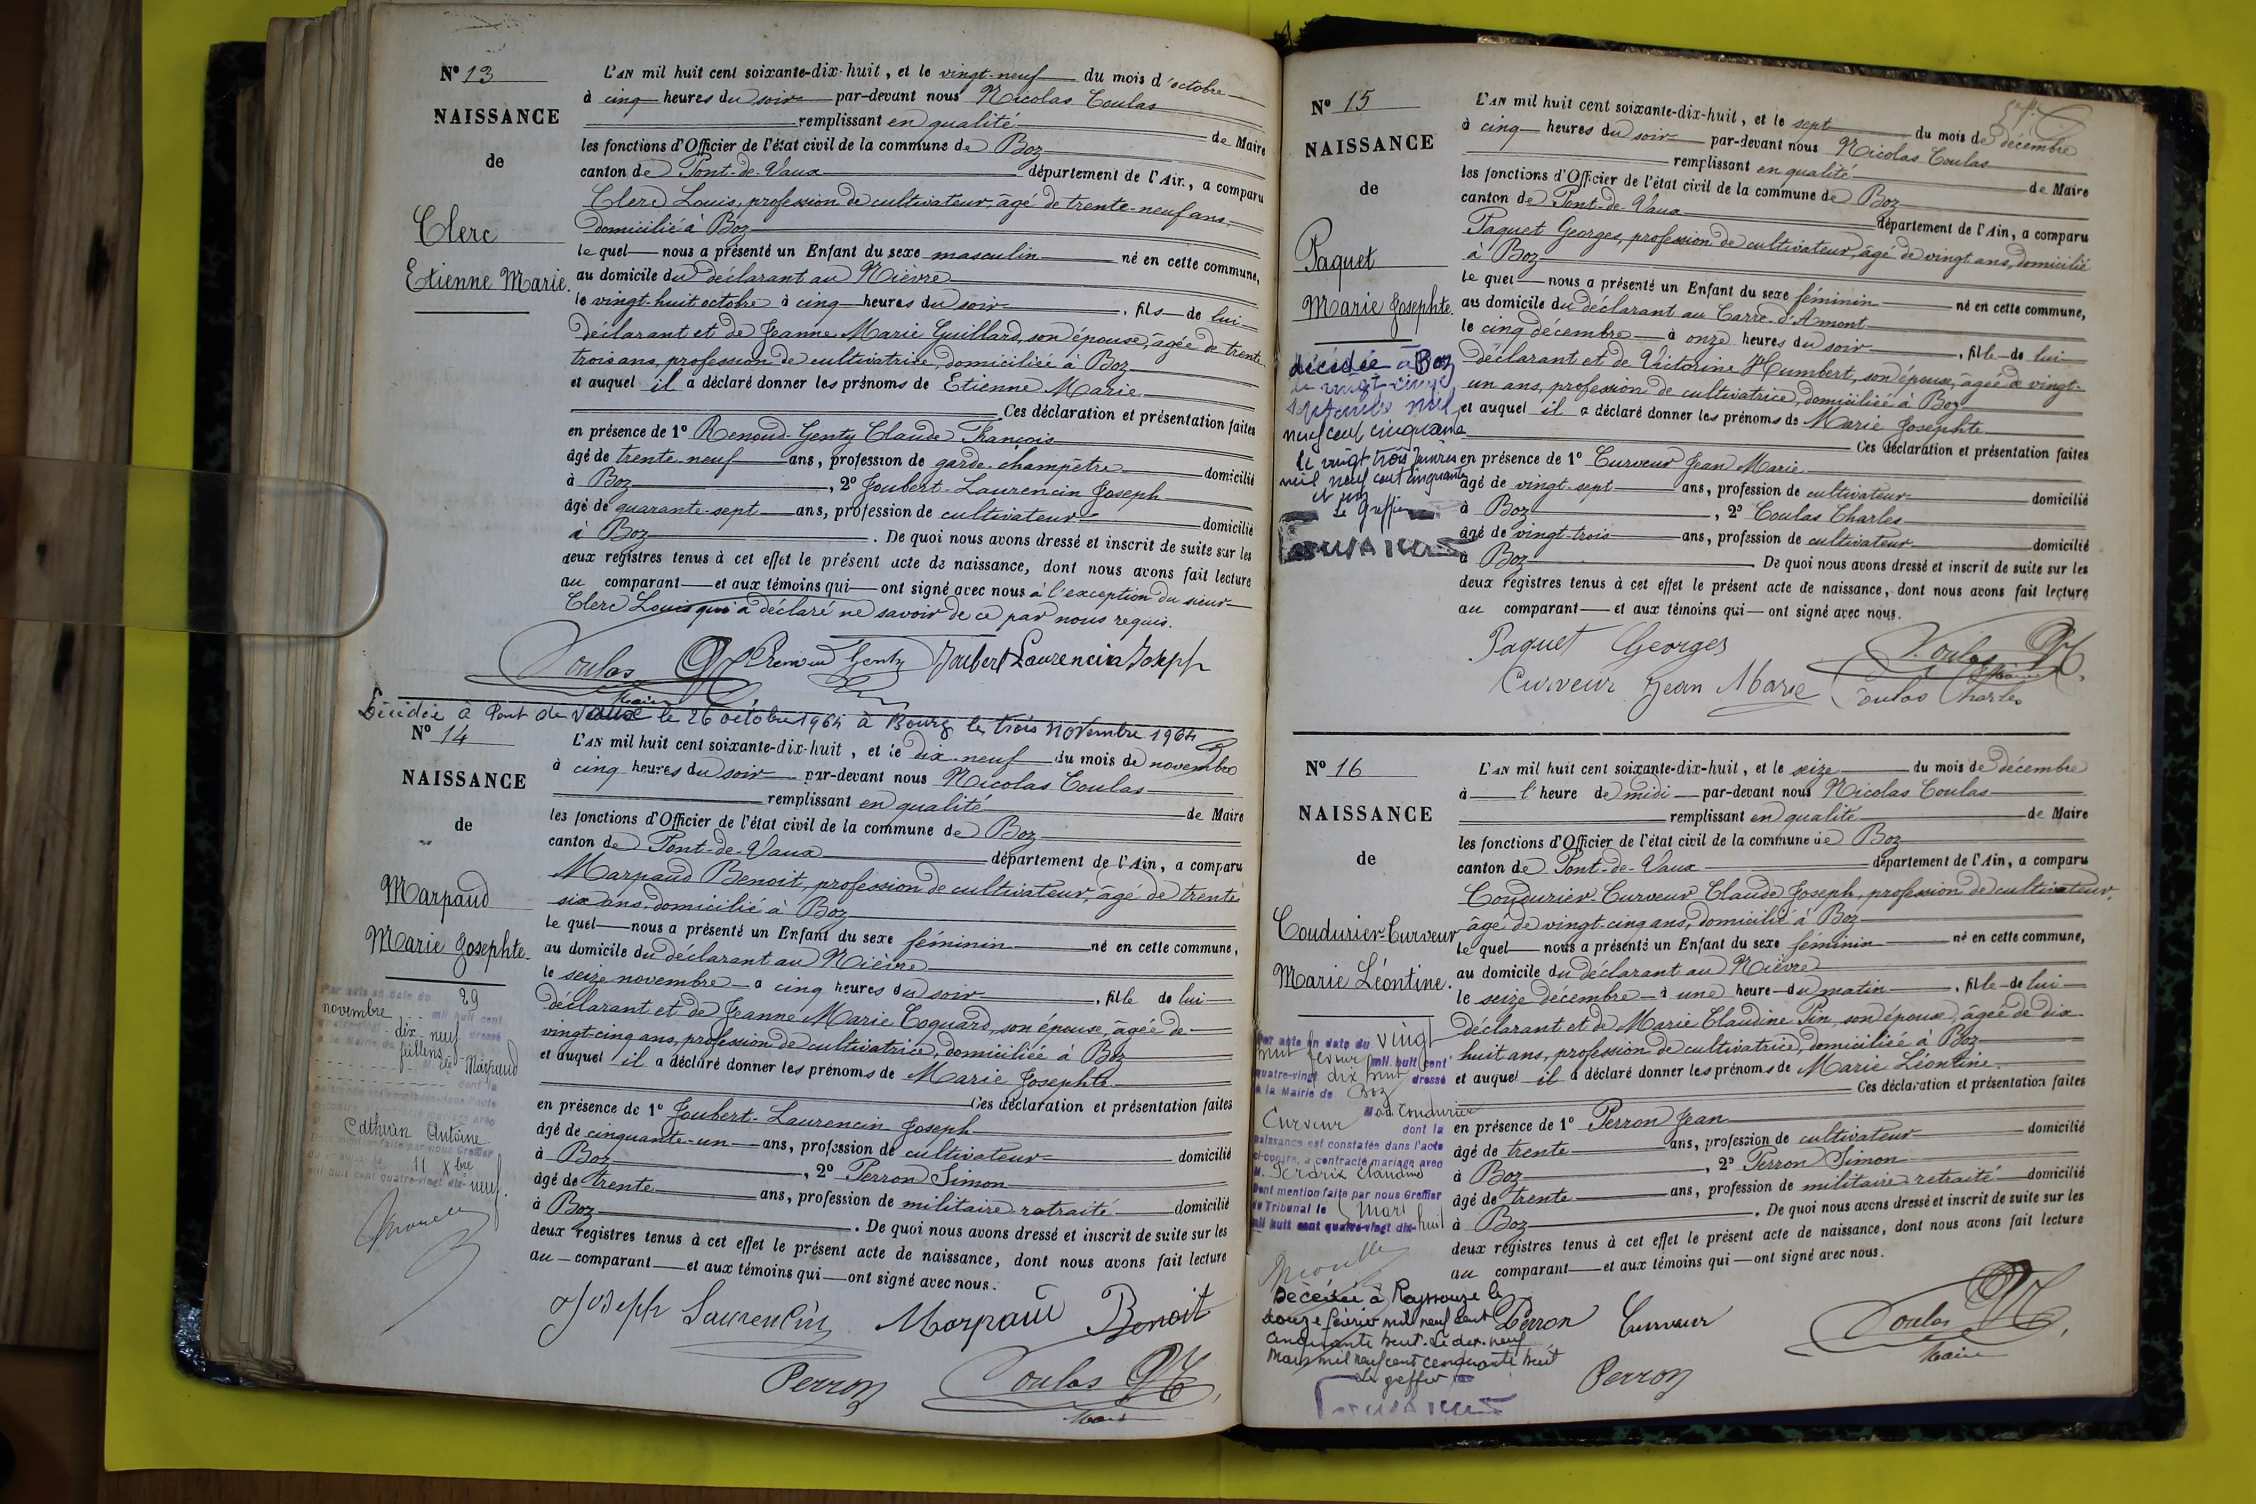 N° 13
NAISSANCE
de
Clerc
Etienne Marie.
L'AN mil huit cent soixante-dix-huit, et le vingt-neuf du mois d'octobre
à cinq heures du soir par-devant nous Nicolas Coulas
remplissant en qualité de Maire
les fonctions d'Officier de l'état civil de la commune de Boz
canton de Pont-de-Vaux département de l'Ain, a comparu
Clerc Louis, profession de cultivateur, âgé de trente-neuf ans,
domicilié à Boz
le quel nous a présenté un Enfant du sexe masculin né en cette commune,
au domicile du déclarant au Nièvre
le vingt-huit octobre à cinq heures du soir, fils de lui
déclarant et de Jeanne Marie Guillard, son épouse, âgée de trente
trois ans, profession de cultivatrice, domiciliée à Boz
et auquel il a déclaré donner les prénoms de Etienne Marie
Ces déclaration et présentation faites
en présence de 1° Renoud-Genty Claude François
âgé de trente-neuf ans, profession de garde-champêtre domicilié
à Boz, 2° Joubert-Laurencin Joseph
âgé de quarante-sept ans, profession de cultivateur domicilié
à Boz. De quoi nous avons dressé et inscrit de suite sur les
deux registres tenus à cet effet le présent acte de naissance, dont nous avons fait lecture
au comparant et aux témoins qui ont signé avec nous à l'exception du sieur
Clerc Louis qui a déclaré ne savoir de ce par nous requis.
Coulas Renoud Genty Joubert Laurencin Joseph
Maire
Décédée à Pont de Vaux le 26 octobre 1964 à Bourg le trois novembre 1964
N° 14
NAISSANCE
de
Marpaud
Marie Josephte.
Par acte en date du 29
novembre mil huit cent
quatre-vingt dix-neuf dressé
à la Mairie de
Marpaud
dont la
Cathurin Antoine
11 Xbre
mil huit cent quatre-vingt dix-neuf.
L'AN mil huit cent soixante-dix-huit, et le dix-neuf du mois de novembre
à cinq heures du soir par-devant nous Nicolas Coulas
remplissant en qualité de Maire
les fonctions d'Officier de l'état civil de la commune de Boz
canton de Pont-de-Vaux département de l'Ain, a comparu
Marpaud Benoit, profession de cultivateur, âgé de trente
six ans, domicilié à Boz
le quel nous a présenté un Enfant du sexe féminin né en cette commune,
au domicile du déclarant au Nièvre
le seize novembre à cinq heures du soir, fille de lui
déclarant et de Jeanne Marie Coguard, son épouse, âgée de
vingt-cinq ans, profession de cultivatrice, domiciliée à Boz
et auquel il a déclaré donner les prénoms de Marie Josephte
Ces déclaration et présentation faites
en présence de 1° Joubert-Laurencin Joseph
âgé de cinquante-un ans, profession de cultivateur domicilié
à Boz, 2° Perron Simon
âgé de trente ans, profession de militaire retraité domicilié
à Boz. De quoi nous avons dressé et inscrit de suite sur les
deux registres tenus à cet effet le présent acte de naissance, dont nous avons fait lecture
au comparant et aux témoins qui ont signé avec nous.
Joseph Laurencin Marpaud Benoit
Perron Coulas
Maire
N° 15
NAISSANCE
de
Paquet
Marie Josephte.
décédée à Boz
le vingt-cinq
septembre mil
neuf cent cinquante
le vingt trois janvier
mil neuf cent cinquante
et un
Le Greffier
L'AN mil huit cent soixante-dix-huit, et le sept du mois de décembre
à cinq heures du soir par-devant nous Nicolas Coulas
remplissant en qualité de Maire
les fonctions d'Officier de l'état civil de la commune de Boz
canton de Pont-de-Vaux département de l'Ain, a comparu
Paquet Georges, profession de cultivateur, âgé de vingt ans, domicilié
à Boz
le quel nous a présenté un Enfant du sexe féminin né en cette commune,
au domicile du déclarant au Carre-d'Amont
le cinq décembre à onze heures du soir, fille de lui
déclarant et de Victorine Humbert, son épouse, âgée de vingt-
un ans, profession de cultivatrice, domiciliée à Boz
et auquel il a déclaré donner les prénoms de Marie Josephte
Ces déclaration et présentation faites
en présence de 1° Curveur Jean Marie
âgé de vingt-sept ans, profession de cultivateur domicilié
à Boz, 2° Coulas Charles
âgé de vingt-trois ans, profession de cultivateur domicilié
à Boz De quoi nous avons dressé et inscrit de suite sur les
deux registres tenus à cet effet le présent acte de naissance, dont nous avons fait lecture
au comparant et aux témoins qui ont signé avec nous.
Paquet Georges Coulas
Maire
Curveur Jean Marie Coulas Charles
N° 16
NAISSANCE
de
Coudurier-Curveur
Marie Léontine.
Par acte en date du vingt
huit février mil huit cent
quatre-vingt dix huit dressé
à la Mairie de Boz
Mad Coudurier
Curveur dont la
naissance est constatée dans l'acte
ci-contre, a contracté mariage avec
M.
Dont mention faite par nous Greffier
du Tribunal le Mars
mil huit cent quatre-vingt dix-huit
Décédée à Reyssouze le
douze février mil neuf cent
cinquante huit. Le dix-neuf
Mars mil neuf cent cinquante huit
Le greffier
L'AN mil huit cent soixante-dix-huit, et le seize du mois de décembre
à l'heure de midi par-devant nous Nicolas Coulas
remplissant en qualité de Maire
les fonctions d'Officier de l'état civil de la commune de Boz
canton de Pont-de-Vaux département de l'Ain, a comparu
Coudurier-Curveur Claude Joseph, profession de cultivateur,
âgé de vingt-cinq ans, domicilié à Boz
le quel nous a présenté un Enfant du sexe féminin né en cette commune,
au domicile du déclarant au Nièvre
le seize décembre à une heure du matin, fille de lui
déclarant et de Marie Claudine Pin, son épouse, âgée de dix
huit ans, profession de cultivatrice, domiciliée à Boz
et auquel il a déclaré donner les prénoms de Marie Léontine.
Ces déclaration et présentation faites
en présence de 1° Perron Jean
âgé de trente ans, profession de cultivateur domicilié
à Boz, 2° Perron Simon
âgé de trente ans, profession de militaire retraité domicilié
à Boz. De quoi nous avons dressé et inscrit de suite sur les
deux registres tenus à cet effet le présent acte de naissance, dont nous avons fait lecture
au comparant et aux témoins qui ont signé avec nous.
Perron Curveur Coulas
Maire
Perron